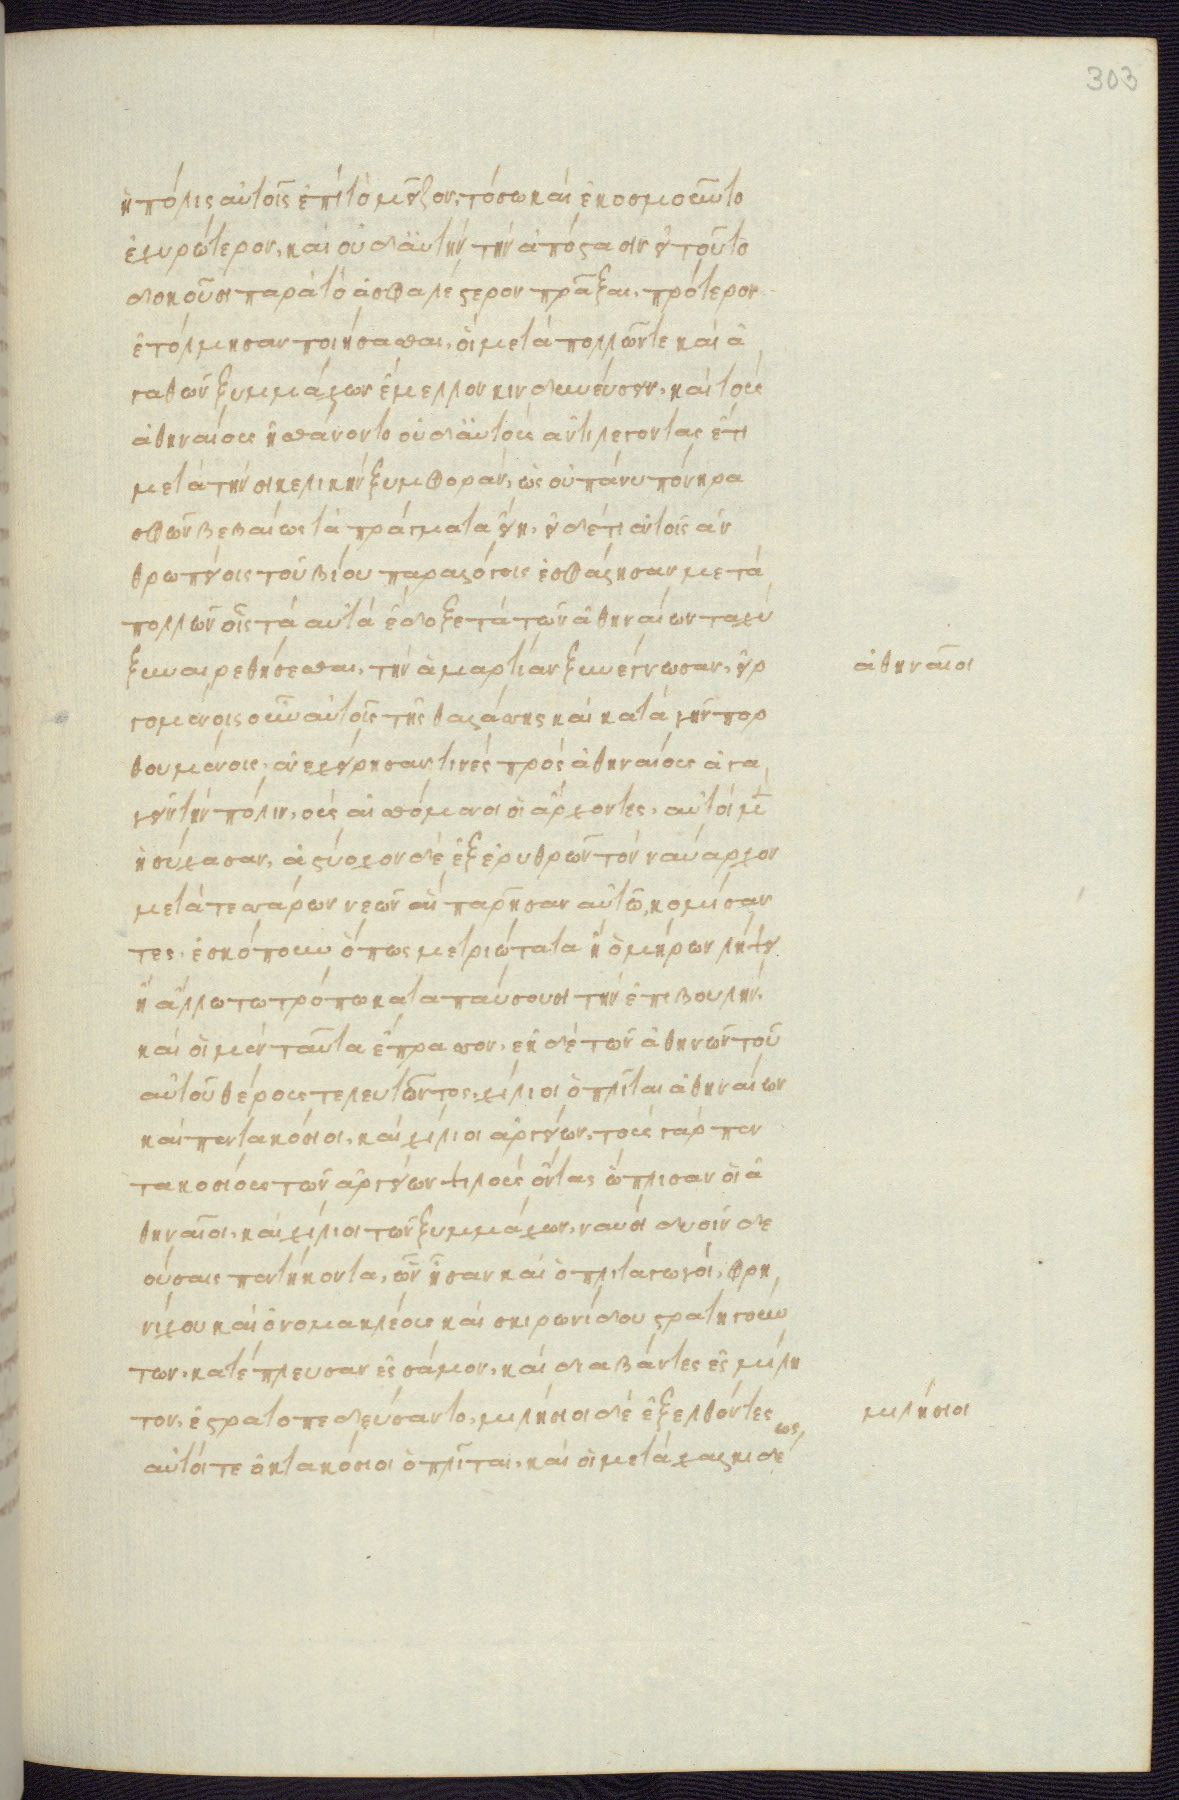 303
ἡ πόλις αὐτοῖς ἐπὶ τὸ μεῖζον, τόσω καὶ ἐκοσμοῦντο
ἐχυρώτερον, καὶ οὐδ' αὐτὴν τὴν ἀπόστασιν εἰ τοῦτο
δοκοῦσι παρὰ τὸ ἀσφαλέστερον πρᾶξαι, πρότερον
ἐτόλμησαν ποιήσασθαι, ἢ μετὰ πολλῶν τε καὶ ἀ
γαθῶν ξυμμάχων ἔμελλον κινδυνεύσειν, καὶ τοὺς
ἀθηναίους ἠσθάνοντο οὐδ' αὐτοὺς ἀντιλέγοντας ἔτι
μετὰ τὴν σικελικὴν ξυμφορὰν, ὡς οὐ πάνυ πόνηρα
σφῶν βεβαίως τὰ πράγματα εἴη, εἰ δέ τι αὐτοῖς ἀν
θρωπείοις τοῦ βίου παραλόγοις ἐσφάλησαν, μετὰ
πολλῶν οἷς τὰ αὐτὰ ἔδοξε τὰ τῶν ἀθηναίων ταχὺ
ξυναιρεθήσεσθαι, τὴν ἁμαρτίαν ξυνέγνωσαν, εἰρ
ἀθηναῖοι
γομένοις οὖν αὐτοῖς τῆς θαλάσσης καὶ κατὰ γῆν πορ
θουμένοις, ἐνεχείρησάν τινες πρὸς ἀθηναίους ἀγα
γεῖν τὴν πόλιν, οὓς αἰσθόμενοι οἱ ἄρχοντες, αὐτοὶ μὲν
ἡσύχασαν, ἀστύοχον δὲ ἐξ ἐρυθρῶν τὸν ναύαρχον
μετὰ τεσσάρων νεῶν αἳ παρῆσαν αὐτῶ, κομίσαν
τες, ἐσκόπουν ὅπως μετριώτατα ἢ ὁμήρων λήψει
ἢ ἄλλω τω τρόπω καταπαύσουσι τὴν ἐπιβουλήν,
καὶ οἱ μὲν ταῦτα ἔπρασσον, ἐκ δὲ τῶν ἀθηνῶν τοῦ
αὐτοῦ θέρους τελευτῶντος, χίλιοι ὁπλῖται ἀθηναίων
καὶ πεντακόσιοι, καὶ χίλιοι ἀργείων, τοὺς γὰρ πεν
τακοσίους τῶν ἀργείων ψιλοὺς ὄντας ὥπλισαν οἱ ἀ
θηναῖοι, καὶ χίλιοι τῶν ξυμμάχων, ναυσὶ δυσὶν δε
ούσαις πεντήκοντα, ὧν ἦσαν καὶ ὁπλιταγωγοί, φρυ
νίχου καὶ ὀνομακλέους καὶ σκιρωνίδου στρατηγούν
των, κατέπλευσαν ἐς σάμον, καὶ διαβάντες ἐς μίλη
τον, ἐστρατοπεδεύσαντο, μιλήσιοι δὲ ἐξελθόντες
μιλήσιοι
αὐτοί τε ὀκτακόσιοι ὁπλῖται, καὶ οἱ μετὰ χαλκιδέως